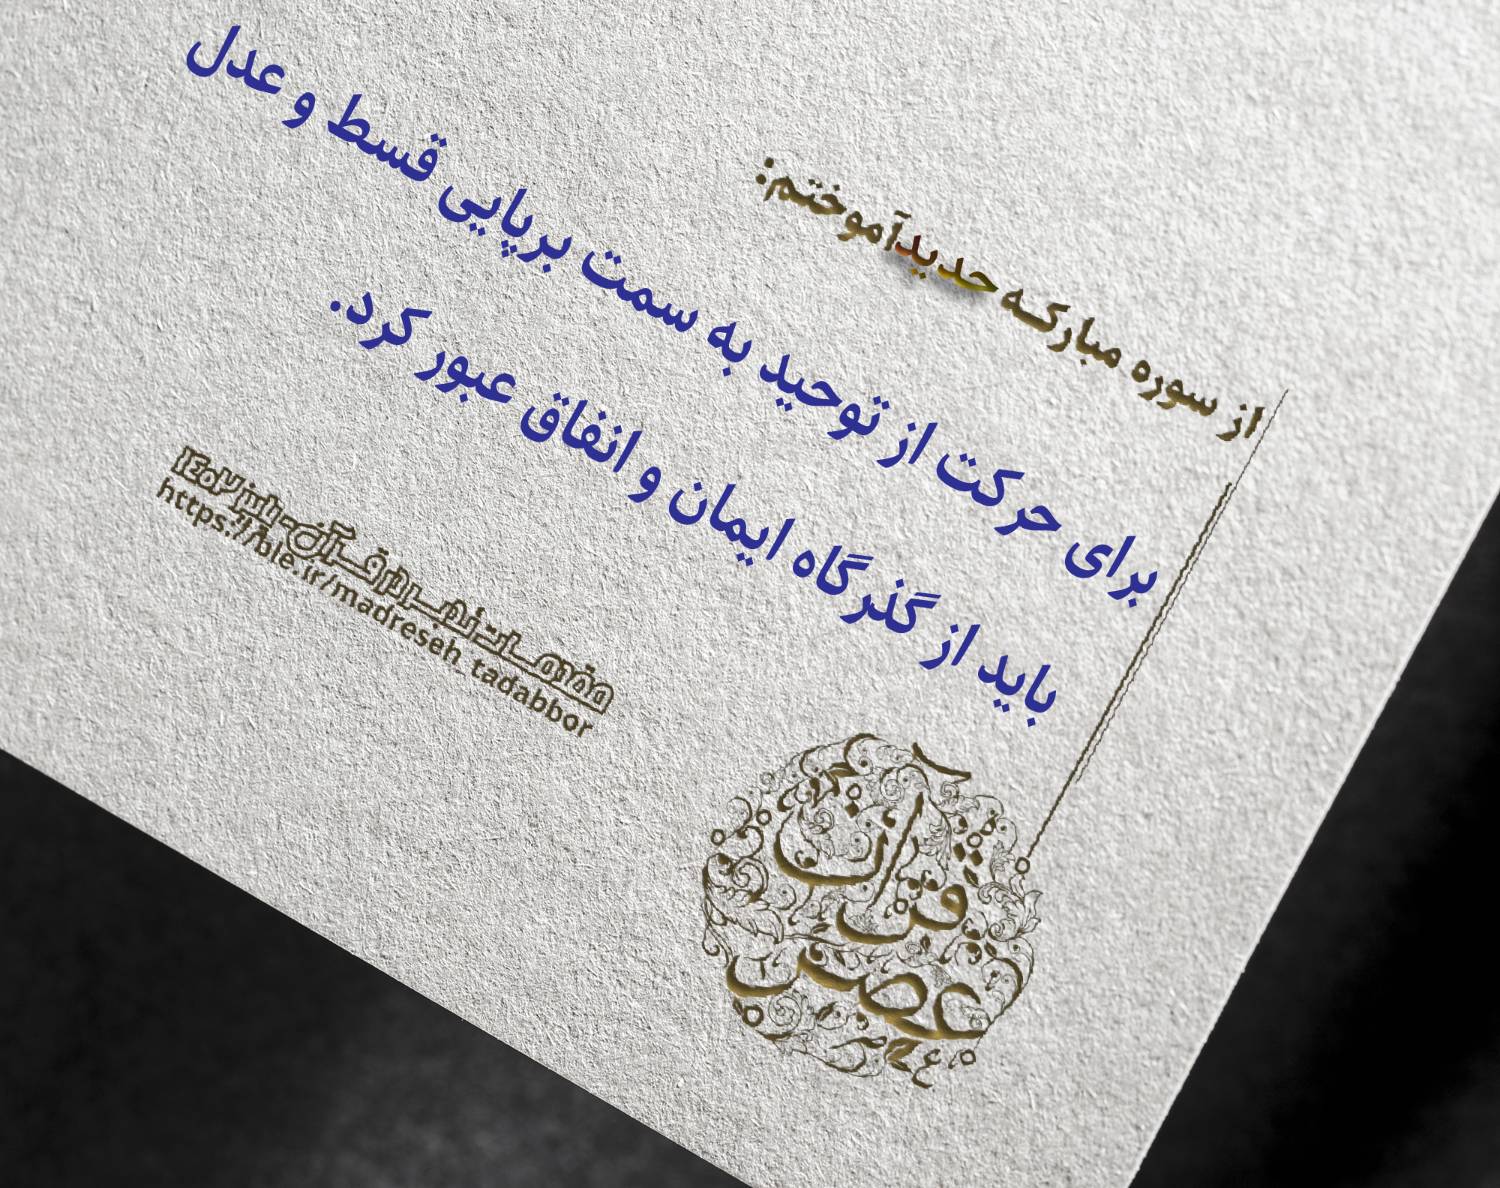 از سوره مبارکه حدید آموختم:
برای حرکت از توحید به سمت برپایی قسط و عدل
باید از گذرگاه ایمان و انفاق عبور کرد.
https://ble.ir/madreseh_tadabbor
قرآن
عصر